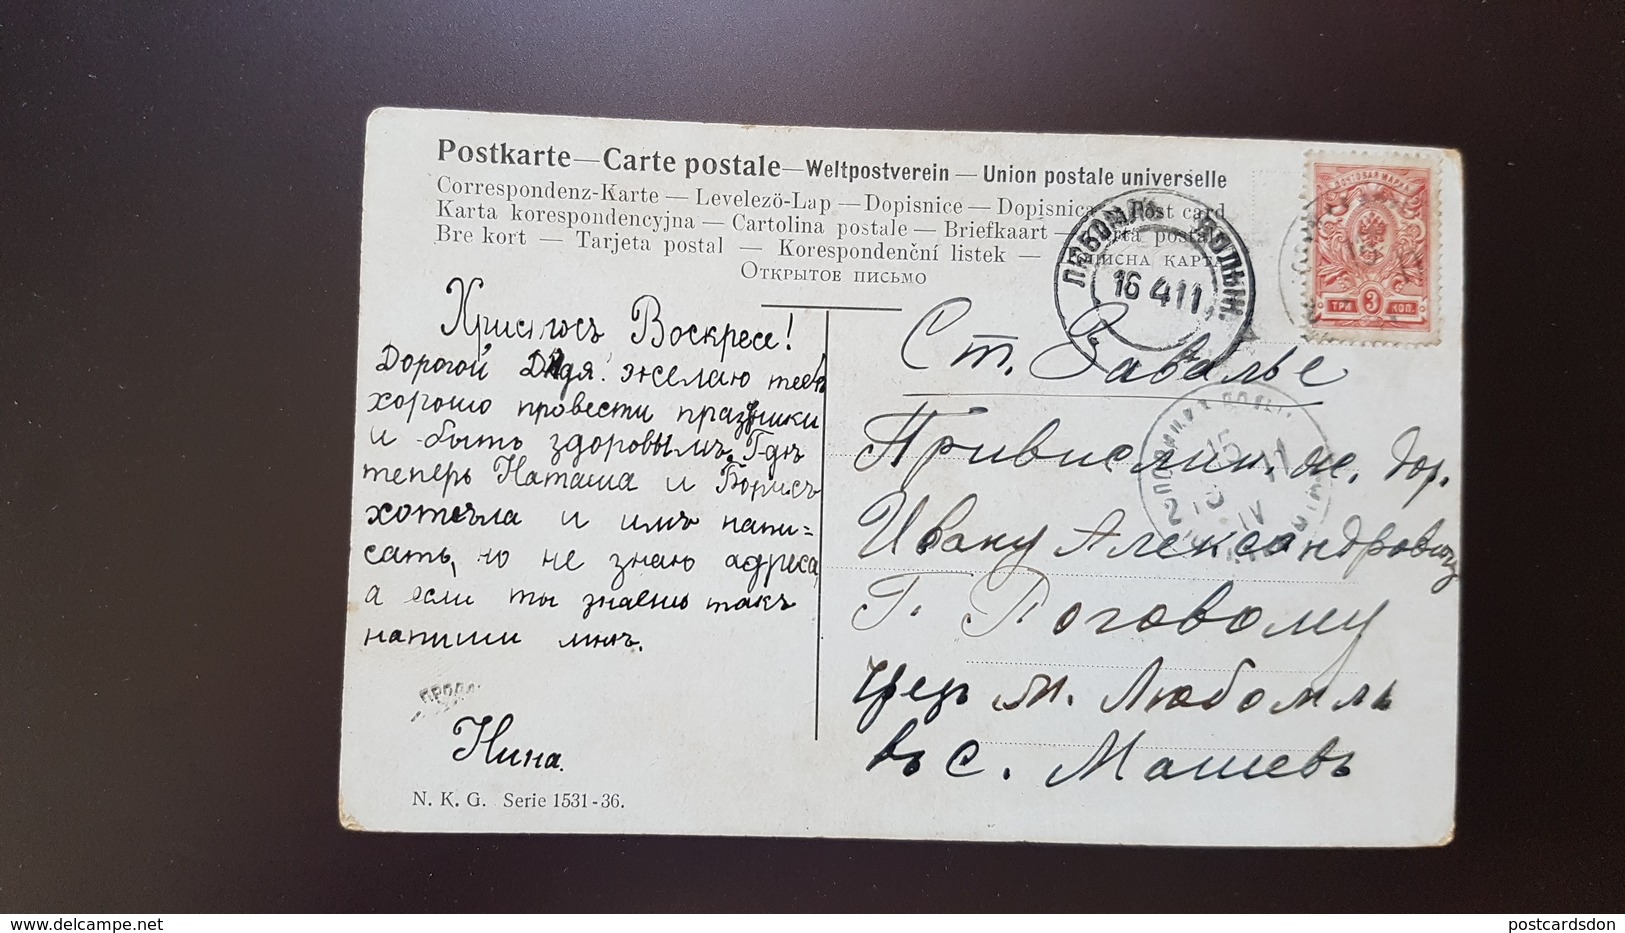 Postkarte — Carte postale — Weltpostverein — Union postale universelle
Correspondenz-Karte — Levelező-Lap — Dopisnice — Dopisnica — Post card
Karta korespondencyjna — Cartolina postale — Briefkaart — Carta postal
Bre kort — Tarjeta postal — Korespondenční listek — Дописна карта
Открытое письмо
Христосъ Воскресе!
Дорогой Дядя! желаю тебѣ
хорошо провести праздники
и быть здоровымъ. Гдѣ
теперь Наташа и Борисъ
хотѣла и имъ напи=
сать, но не знаю адреса,
а если ты знаешь такъ
напиши мнѣ.
Нина.
N. K. G. Serie 1531-36.
ЛЮБОМЛЬ ВОЛЫН.
16 4 11
ПОЧТОВАЯ МАРКА
ТРИ 3 КОП.
Ст. Завалье
Привислин. ж. дор.
Ивану Александровичу
Г. Роговому
черезъ м. Любомль
въ с. Машевъ
delcampe.net
postcardsdon